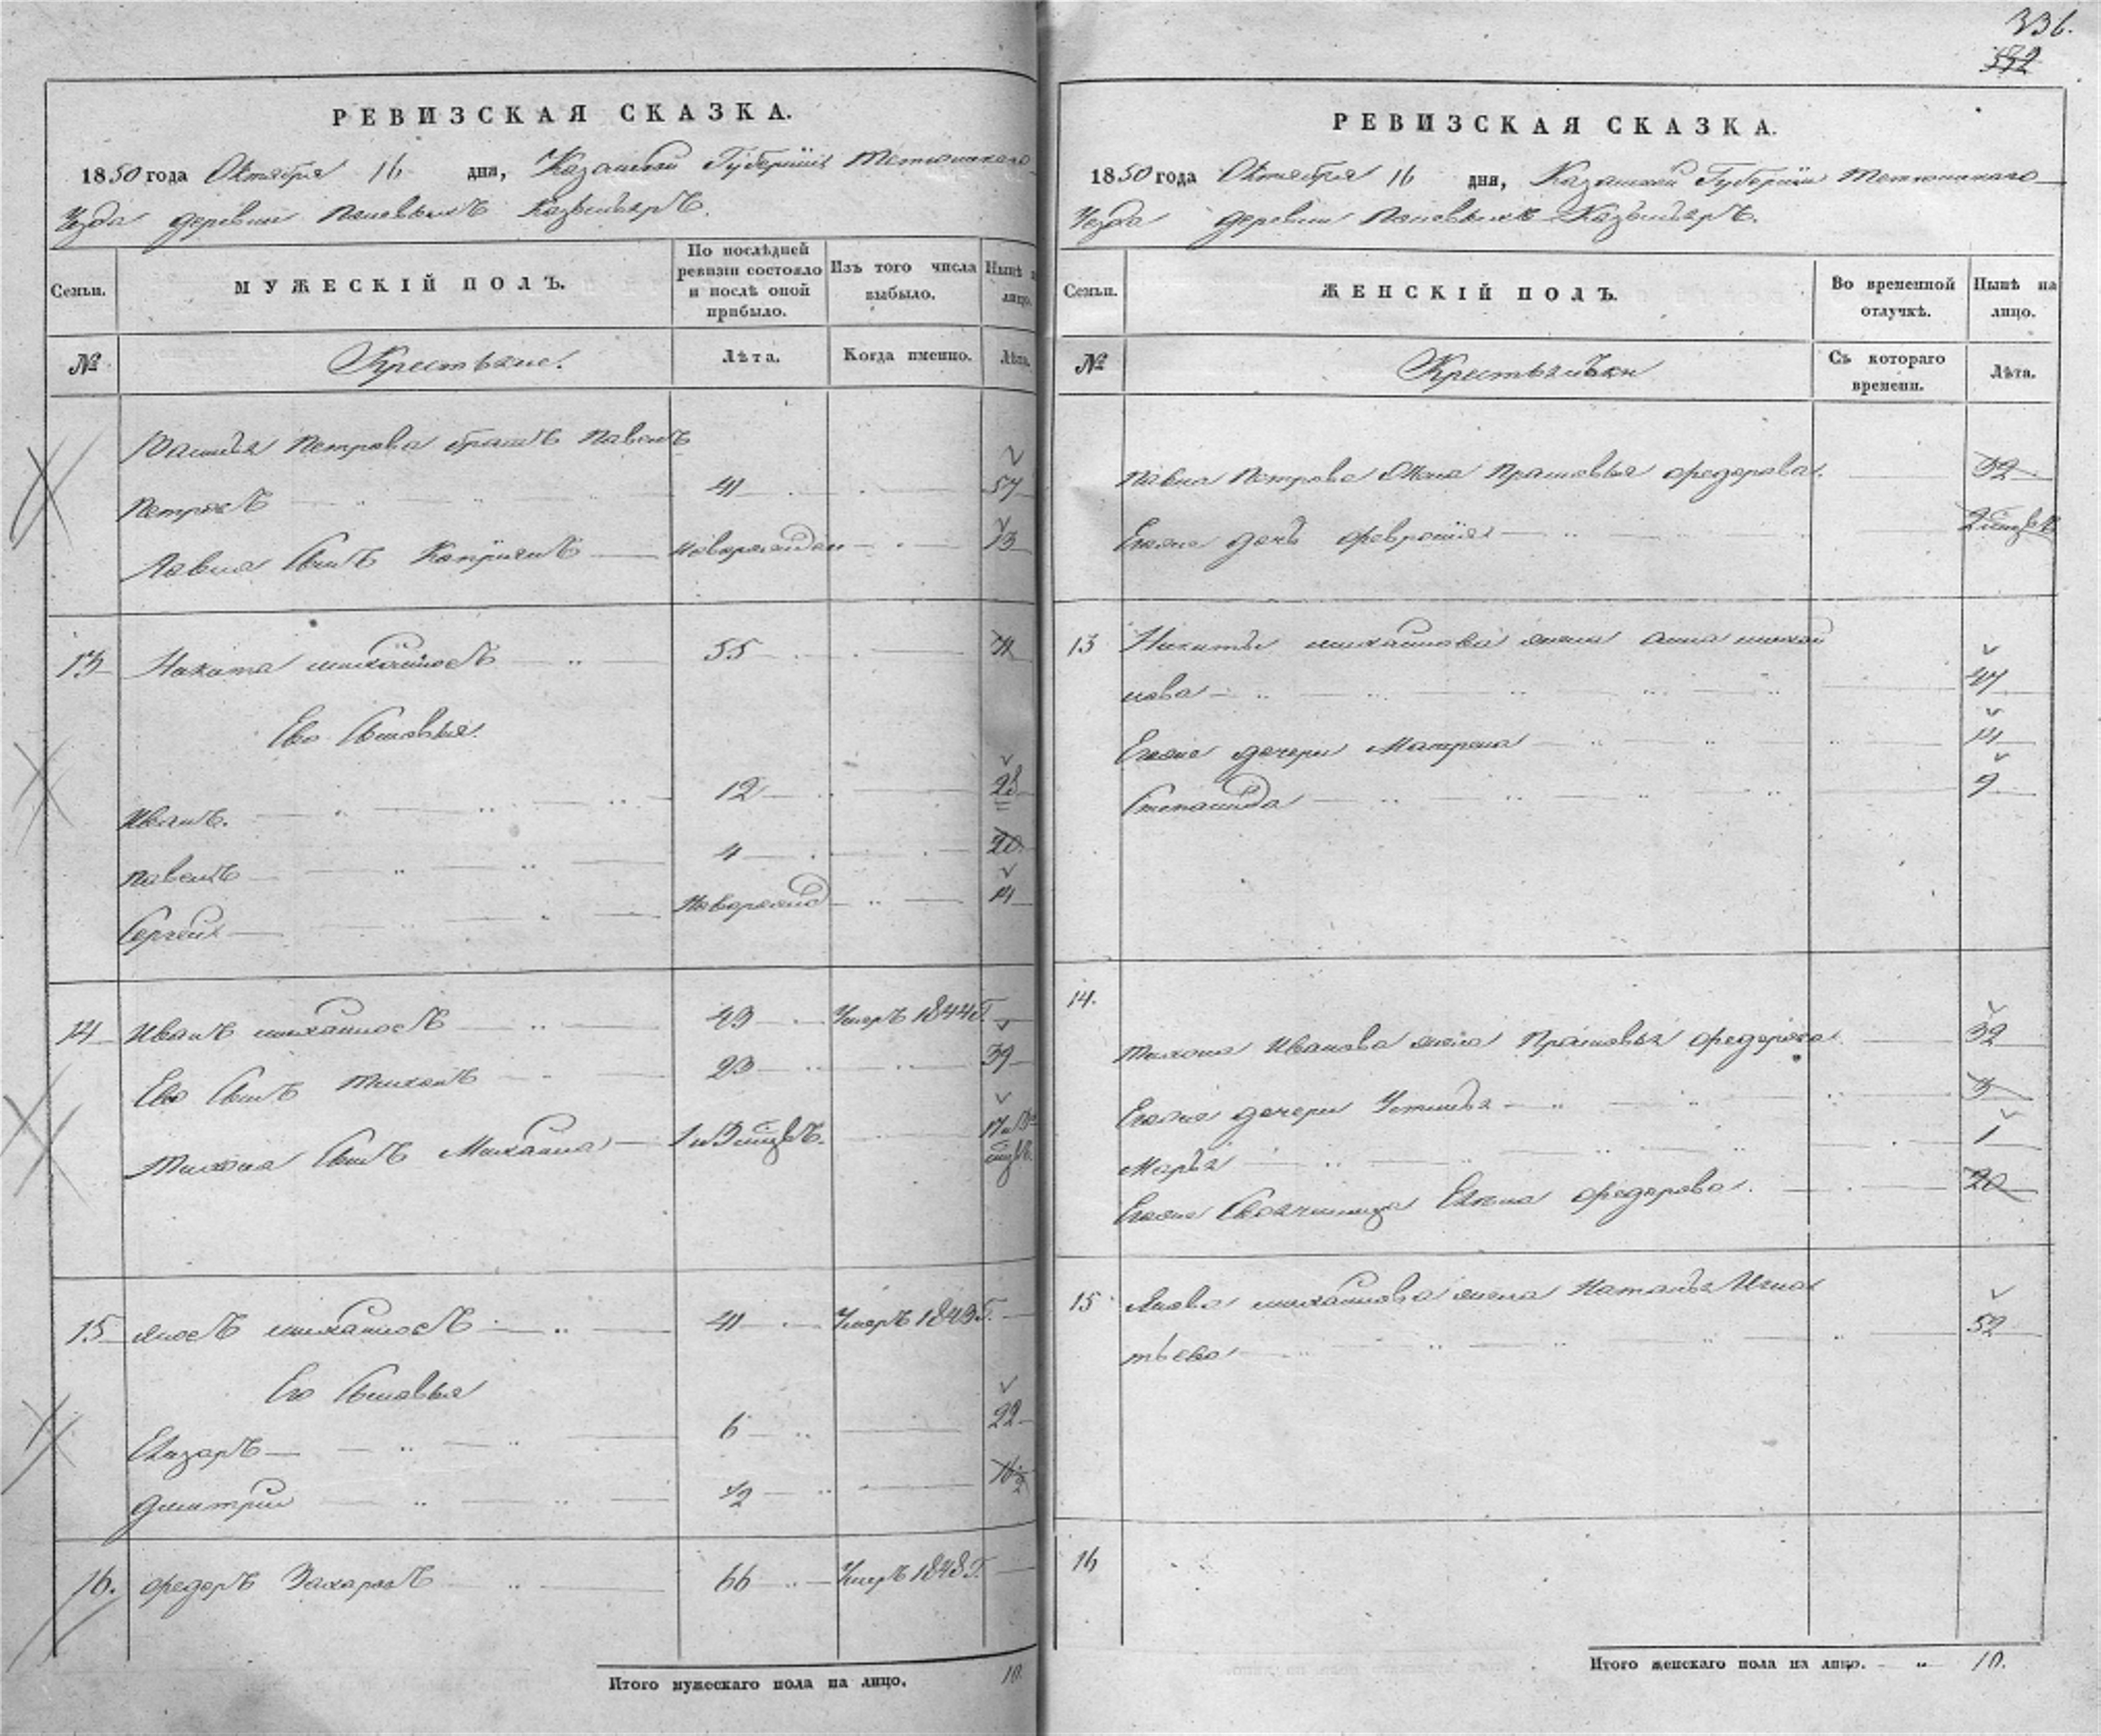 336.
332
РЕВИЗСКАЯ СКАЗКА.
1850 года Октября 16 дня, Казанской Губернiи Тетюшскаго
Уезда деревни
МУЖЕСКІЙ ПОЛЪ.
Семьи.
По послѣдней ревизіи состояло и послѣ оной прибыло.
Изъ того числа выбыло.
Нынѣ на лицо.
№
Крестьяне.
Лѣта.
Когда именно.
Лѣта.
Василья Петрова братъ Павелъ
Петровъ 41 57
Павла сынъ новорожден 13
13 Никита михайловъ 55 71
Ево сыновья
Иванъ. 12 28
павелъ 4 20
Сергей новорожд 14
14 Иванъ михайловъ 43 Умеръ 1844 г.
Ево сынъ тихонъ 23 39
Тихона сынъ Михайла 1 и 3 мцвъ. 17
15 яковъ михайловъ 41 Умеръ 1843 г.
Его сыновья
Елизаръ 6 22
дмитрий 1/2 16 1/2
16. федоръ Захаровъ 66 Умеръ 1848 г.
Итого мужескаго пола на лицо. 10.
РЕВИЗСКАЯ СКАЗКА.
1850 года Октября 16 дня, Казанской Губернiи Тетюшскаго
Уезда деревни
Семьи.
ЖЕНСКІЙ ПОЛЪ.
Во временной отлучкѣ.
Нынѣ на лицо.
№
Крестьянъки
Съ котораго времени.
Лѣта.
павла Петрова жена Прасковья федорова. 32
Егоже дочь феврония
13 Никиты михайлова жена анна михай
лова 47
Егоже дочери Матрена 14
Степанида 9
14.
тихона Иванова жена Прасковья федорова 32
Егоже дочери Устинья 3
Марья 1
Егоже Своячиница Елена федорова. 20
15 Якова михайлова жена Наталья Игна
тьева 52
16
Итого женскаго пола на лицо. 10.